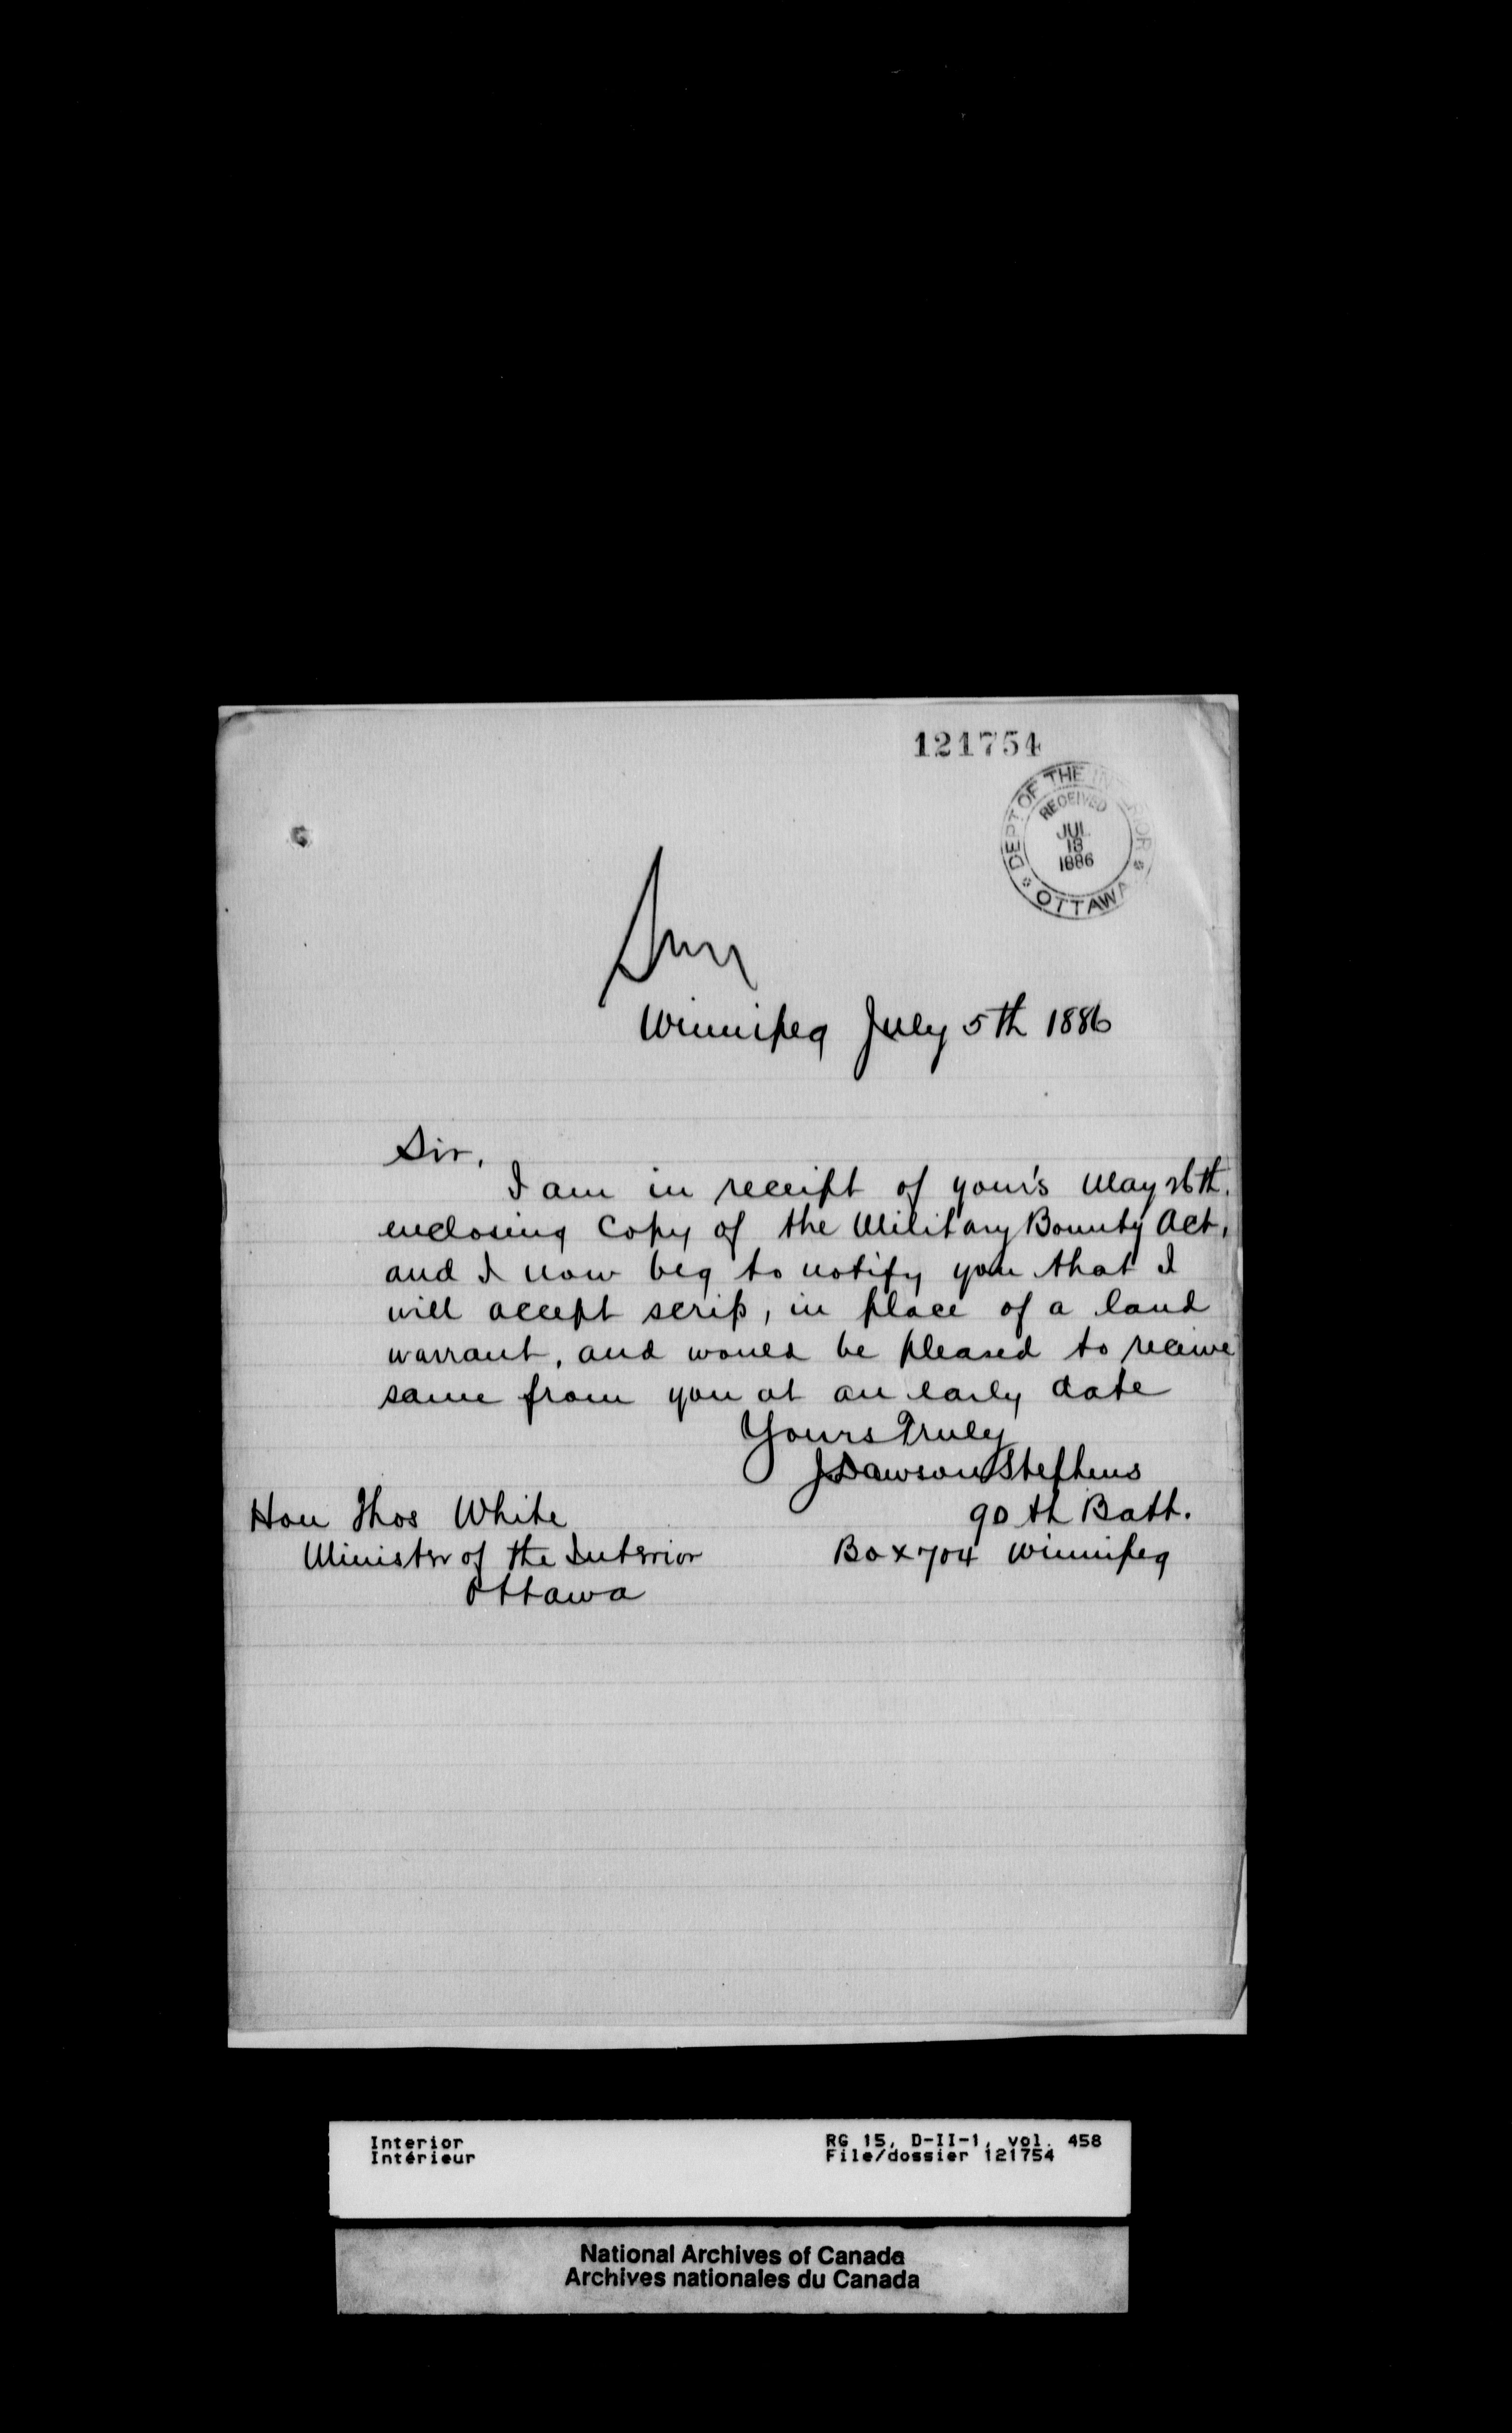 121754
DEPT OF THE INTERIOR
RECEIVED
JUL
13
1886
OTTAWA
Winnipeg July 5th 1886
Sir,
I am in receipt of your's May 26th.
enclosing Copy of the Military Bounty Act,
and I now beg to notify you that I
will accept scrip, in place of a land
warrant, and would be pleased to receive
same from you at an early date
Yours Truly
J Dawson Stephens
90th Batt.
Box 704 Winnipeg
Hon Thos White
Minister of the Interior
Ottawa
Interior
Intérieur
RG 15, D-II-1, vol. 458
File/dossier 121754
National Archives of Canada
Archives nationales du Canada